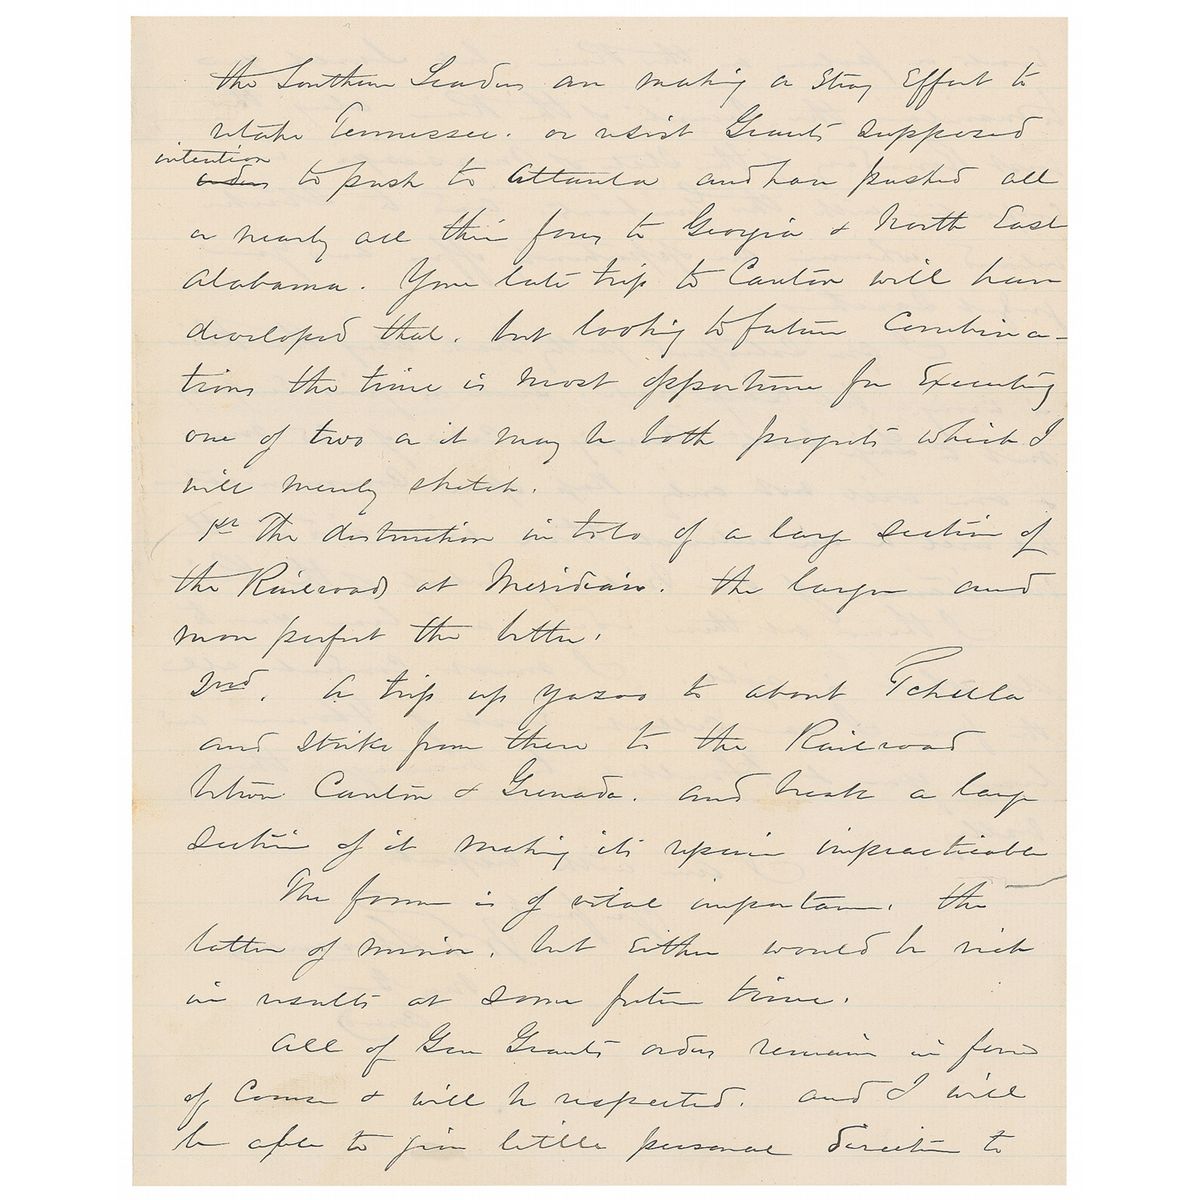 the Southern Leaders are making a Strong Effort to
retake Tennessee. or resist Grants supposed
intention
orders to push to Atlanta and have pushed all
or nearly all their forces to Georgia & North East
Alabama. Your late trip to Canton will have
developed that. but looking to future Combina-
tions the time is most opportune for Executing
one of two or it may be both projects which I
will merely sketch.
1st The destruction in toto of a large section of
the Railroads at Meridian. the larger and
more perfect the better.
2nd. A trip up Yazoo to about Tchula
and strike from there to the Railroad
between Canton & Grenada. and break a large
section of it making its repair impracticable
The former is of vital importance. the
latter of minor. but Either would be rich
in results at some future time.
All of Gen Grants orders remain in force
of Course & will be respected. and I will
be able to give little personal Direction to